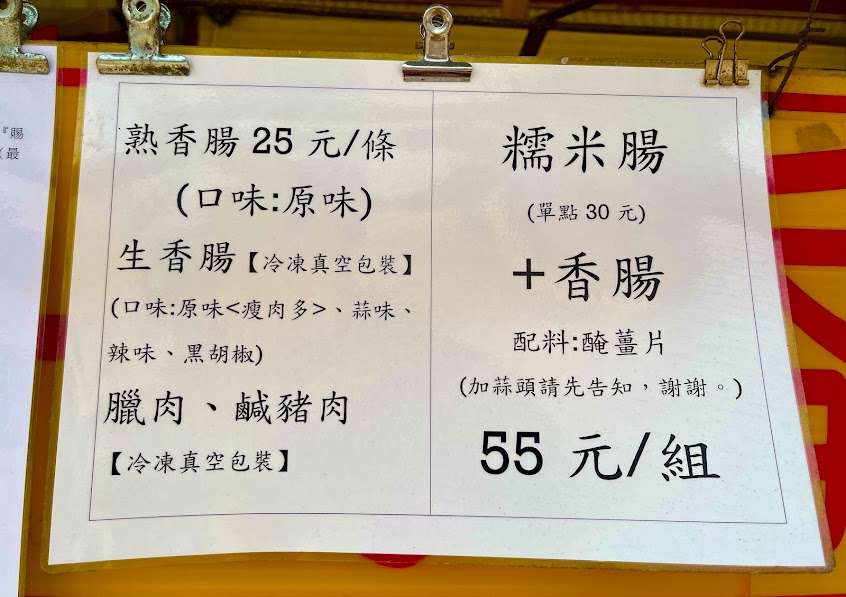 『賜
（最
熟香腸 25 元/條
(口味:原味)
生香腸【冷凍真空包裝】
(口味:原味<瘦肉多>、蒜味、
辣味、黑胡椒)
臘肉、鹹豬肉
【冷凍真空包裝】
糯米腸
(單點 30 元)
+香腸
配料:醃薑片
(加蒜頭請先告知，謝謝。)
55 元/組